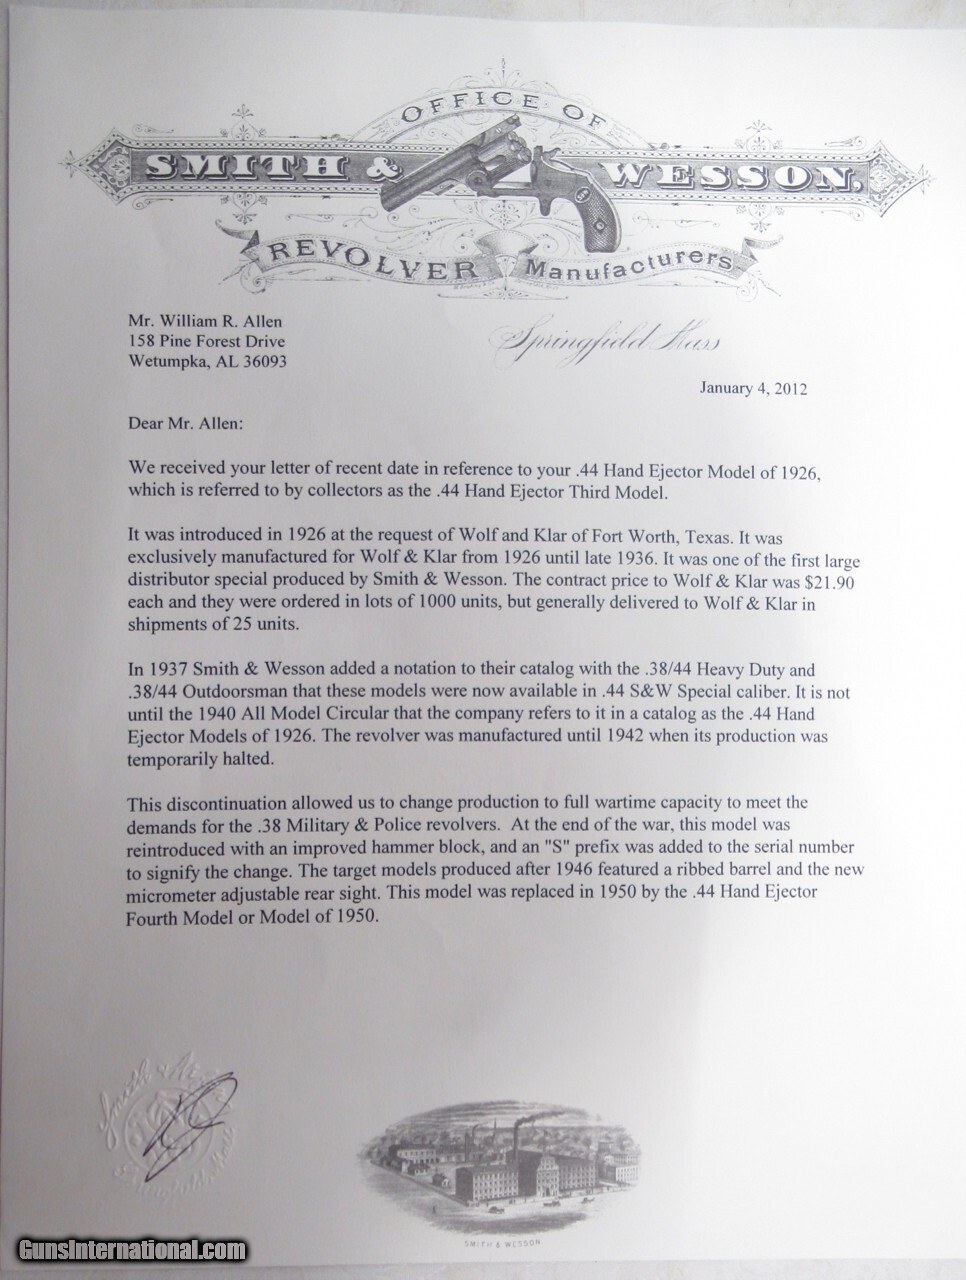 OFFICE OF
SMITH & WESSON,
REVOLVER Manufacturers
Mr. William R. Allen
158 Pine Forest Drive
Wetumpka, AL 36093
Springfield Mass
January 4, 2012
Dear Mr. Allen:
We received your letter of recent date in reference to your .44 Hand Ejector Model of 1926,
which is referred to by collectors as the .44 Hand Ejector Third Model.
It was introduced in 1926 at the request of Wolf and Klar of Fort Worth, Texas. It was
exclusively manufactured for Wolf & Klar from 1926 until late 1936. It was one of the first large
distributor special produced by Smith & Wesson. The contract price to Wolf & Klar was $21.90
each and they were ordered in lots of 1000 units, but generally delivered to Wolf & Klar in
shipments of 25 units.
In 1937 Smith & Wesson added a notation to their catalog with the .38/44 Heavy Duty and
.38/44 Outdoorsman that these models were now available in .44 S&W Special caliber. It is not
until the 1940 All Model Circular that the company refers to it in a catalog as the .44 Hand
Ejector Models of 1926. The revolver was manufactured until 1942 when its production was
temporarily halted.
This discontinuation allowed us to change production to full wartime capacity to meet the
demands for the .38 Military & Police revolvers.  At the end of the war, this model was
reintroduced with an improved hammer block, and an "S" prefix was added to the serial number
to signify the change. The target models produced after 1946 featured a ribbed barrel and the new
micrometer adjustable rear sight. This model was replaced in 1950 by the .44 Hand Ejector
Fourth Model or Model of 1950.
Smith &
Springfield, Mass
SMITH & WESSON
GunsInternational.com